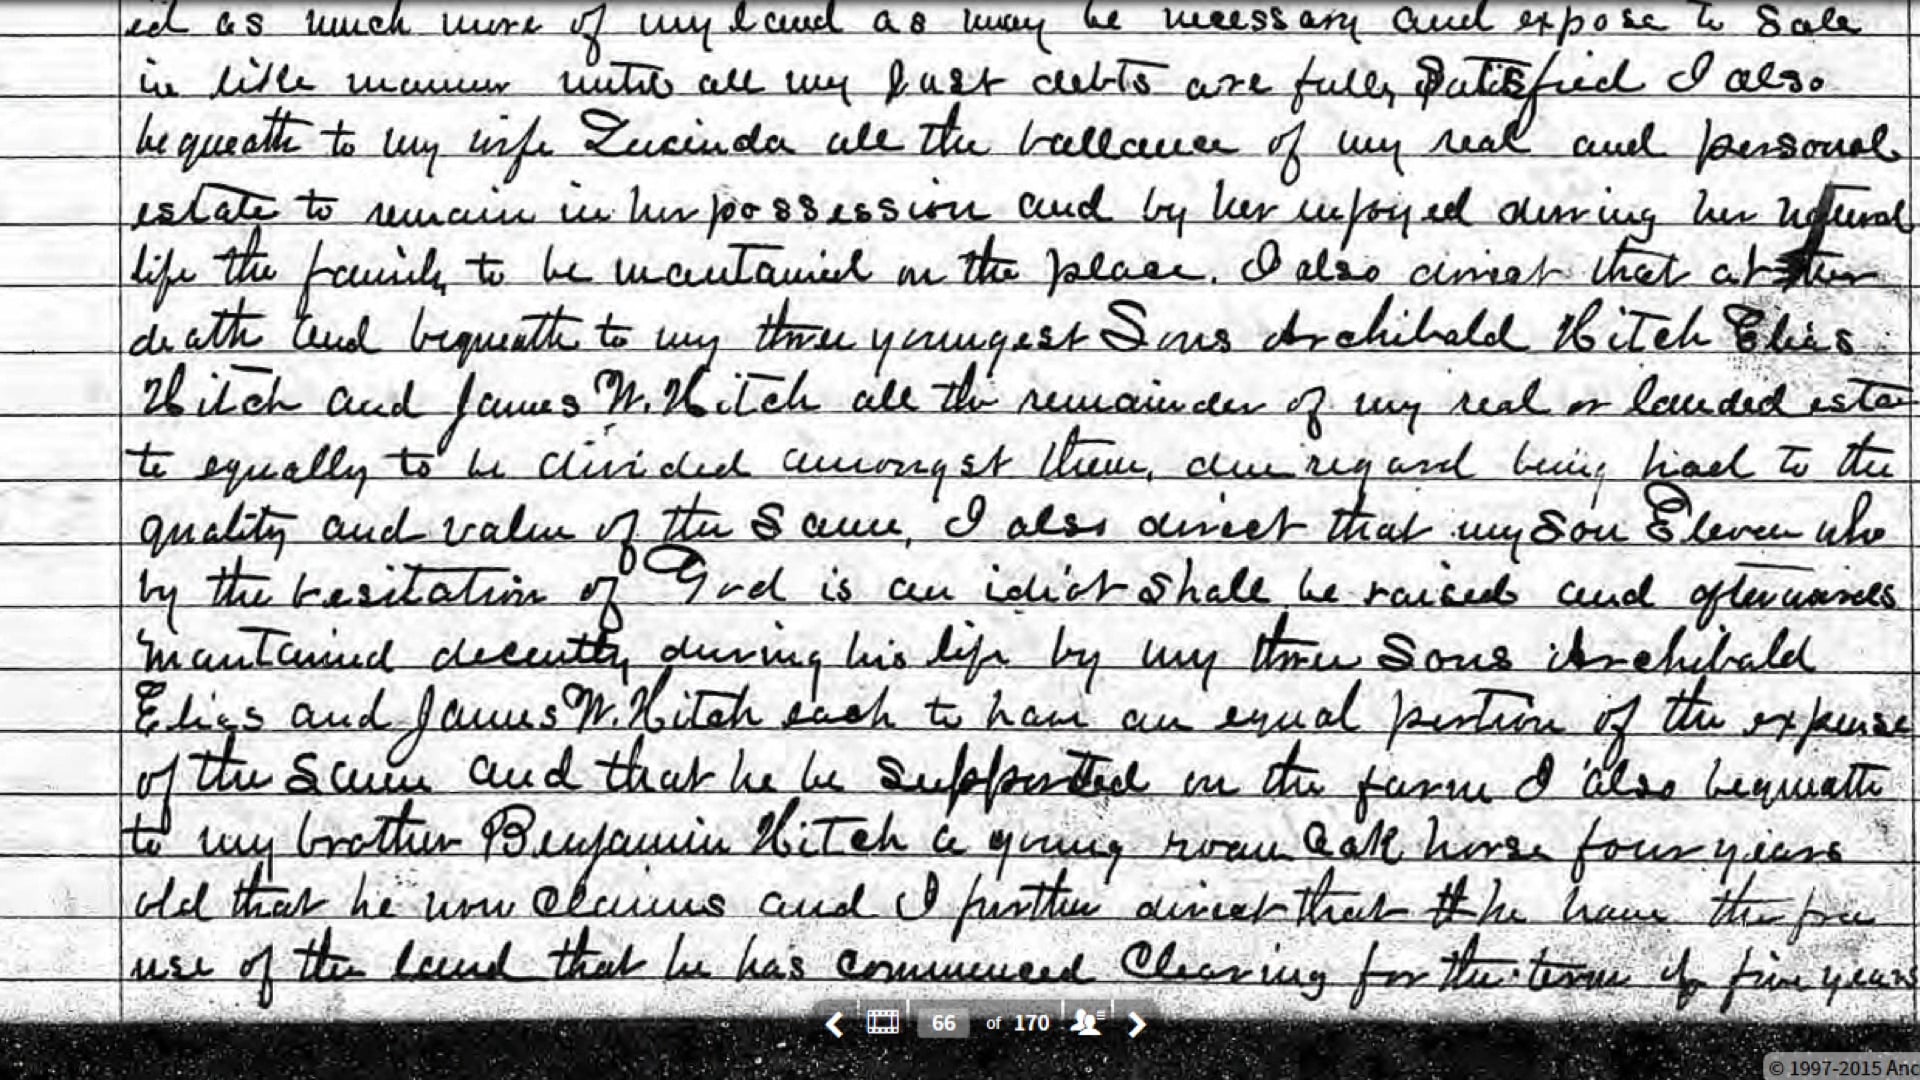 ed as much more of my land as may be necessary and expose to Sale
in like manner until all my just debts are fully Satisfied I also
bequeath to my wife Lucinda all the ballance of my real and personal
estate to remain in her possession and by her injoyed durring her natural
life the family to be mantained on the place. I also direct that at her
death and bequeath to my three youngest Sons Archibald Hitch Elias
Hitch and James W. Hitch all the remainder of my real or landed esta
te equally to be divided amongst them, due regard being had to the
quality and value of the Same, I also direct that my Son Eleven who
by the vesitation of God is an idiot Shall be raised and afterwards
mantained decently during his life by my three Sons Archibald
Elias and James W. Hitch each to have an equal portion of the expense
of the Same and that he be Supported on the farm I also bequeath
to my brother Benjamin Hitch a young roan horse four years
old that he now claims and I further direct that he have the free
use of the land that he has commenced Clearing for the term of five years
66 of 170
© 1997-2015 Anc